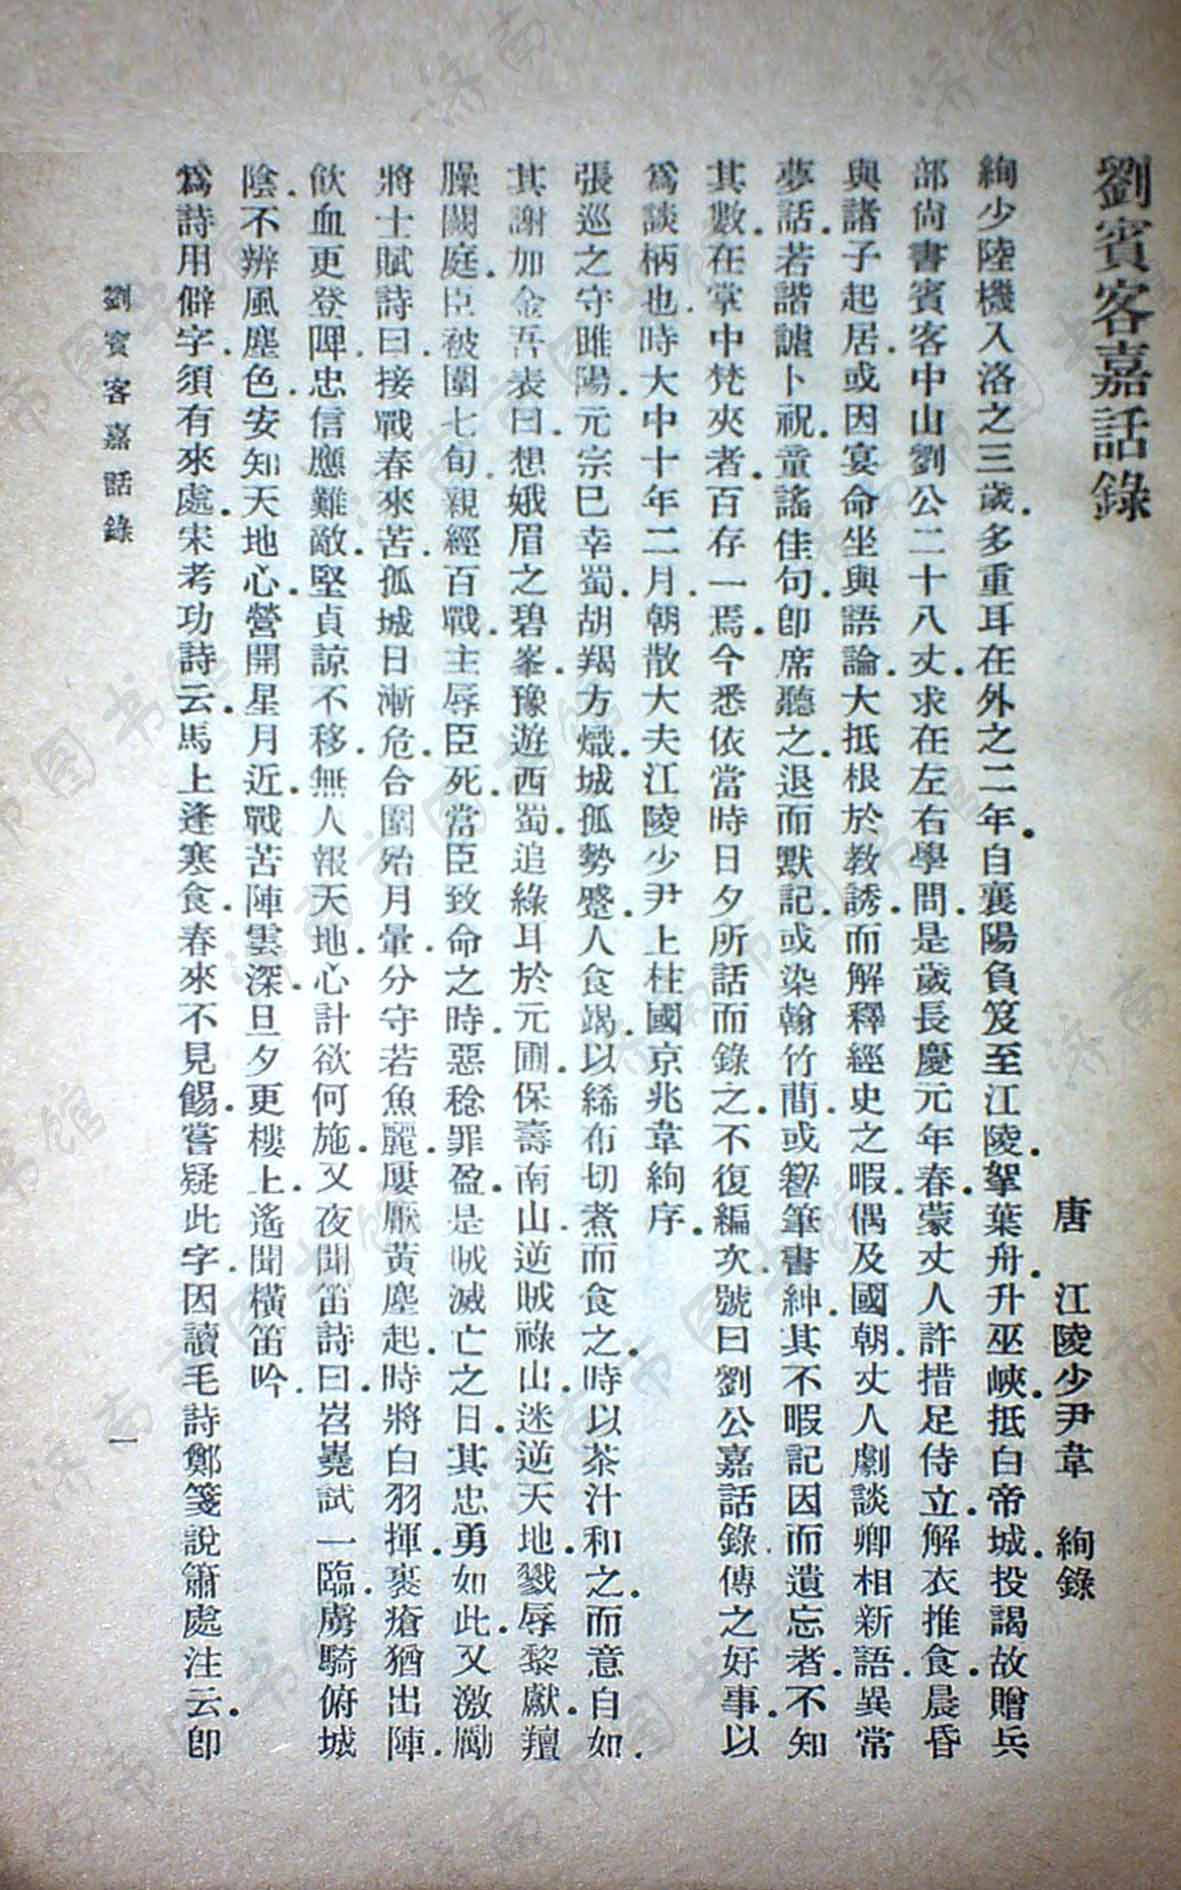 劉賓客嘉話錄
唐　江陵少尹韋　絢錄
絢少陸機入洛之三歲.多重耳在外之二年.自襄陽負笈至江陵.拏葉舟.升巫峽.抵白帝城.投謁故贈兵
部尚書賓客中山劉公二十八丈.求在左右學問.是歲長慶元年春.蒙丈人許措足侍立.解衣推食.晨昏
與諸子起居.或因宴命坐與語論.大抵根於教誘.而解釋經史之暇.偶及國朝.丈人劇談卿相新語.異常
夢話.若諧謔卜祝.童謠佳句.卽席聽之.退而默記.或染翰竹簡.或簪筆書紳.其不暇記因而遺忘者.不知
其數.在掌中梵夾者.百存一焉.今悉依當時日夕所話而錄之.不復編次.號曰劉公嘉話錄.傳之好事.以
爲談柄也.時大中十年二月.朝散大夫江陵少尹上柱國京兆韋絢序.
張巡之守睢陽.元宗已幸蜀.胡羯方熾.城孤勢蹙.人食竭.以絺布切煮而食之.時以茶汁和之.而意自如.
其謝加金吾表曰.想娥眉之碧峯.豫遊西蜀.追綠耳於元圃.保壽南山.逆賊祿山.迷逆天地.戮辱黎獻.羶
臊闕庭.臣被圍七旬.親經百戰.主辱臣死.當臣致命之時.惡稔罪盈.是賊滅亡之日.其忠勇如此.又激勵
將士賦詩曰.接戰春來苦.孤城日漸危.合圍殆月暈.分守若魚麗.屢厭黃塵起.時將白羽揮.裹瘡猶出陣.
飲血更登陴.忠信應難敵.堅貞諒不移.無人報天地.心計欲何施.又夜聞笛詩曰.岧嶤試一臨.虜騎俯城
陰.不辨風塵色.安知天地心.營開星月近.戰苦陣雲深.旦夕更樓上.遙聞橫笛吟.
爲詩用僻字.須有來處.宋考功詩云.馬上逢寒食.春來不見餳.嘗疑此字.因讀毛詩鄭箋說簫處注云.卽
劉賓客嘉話錄
一